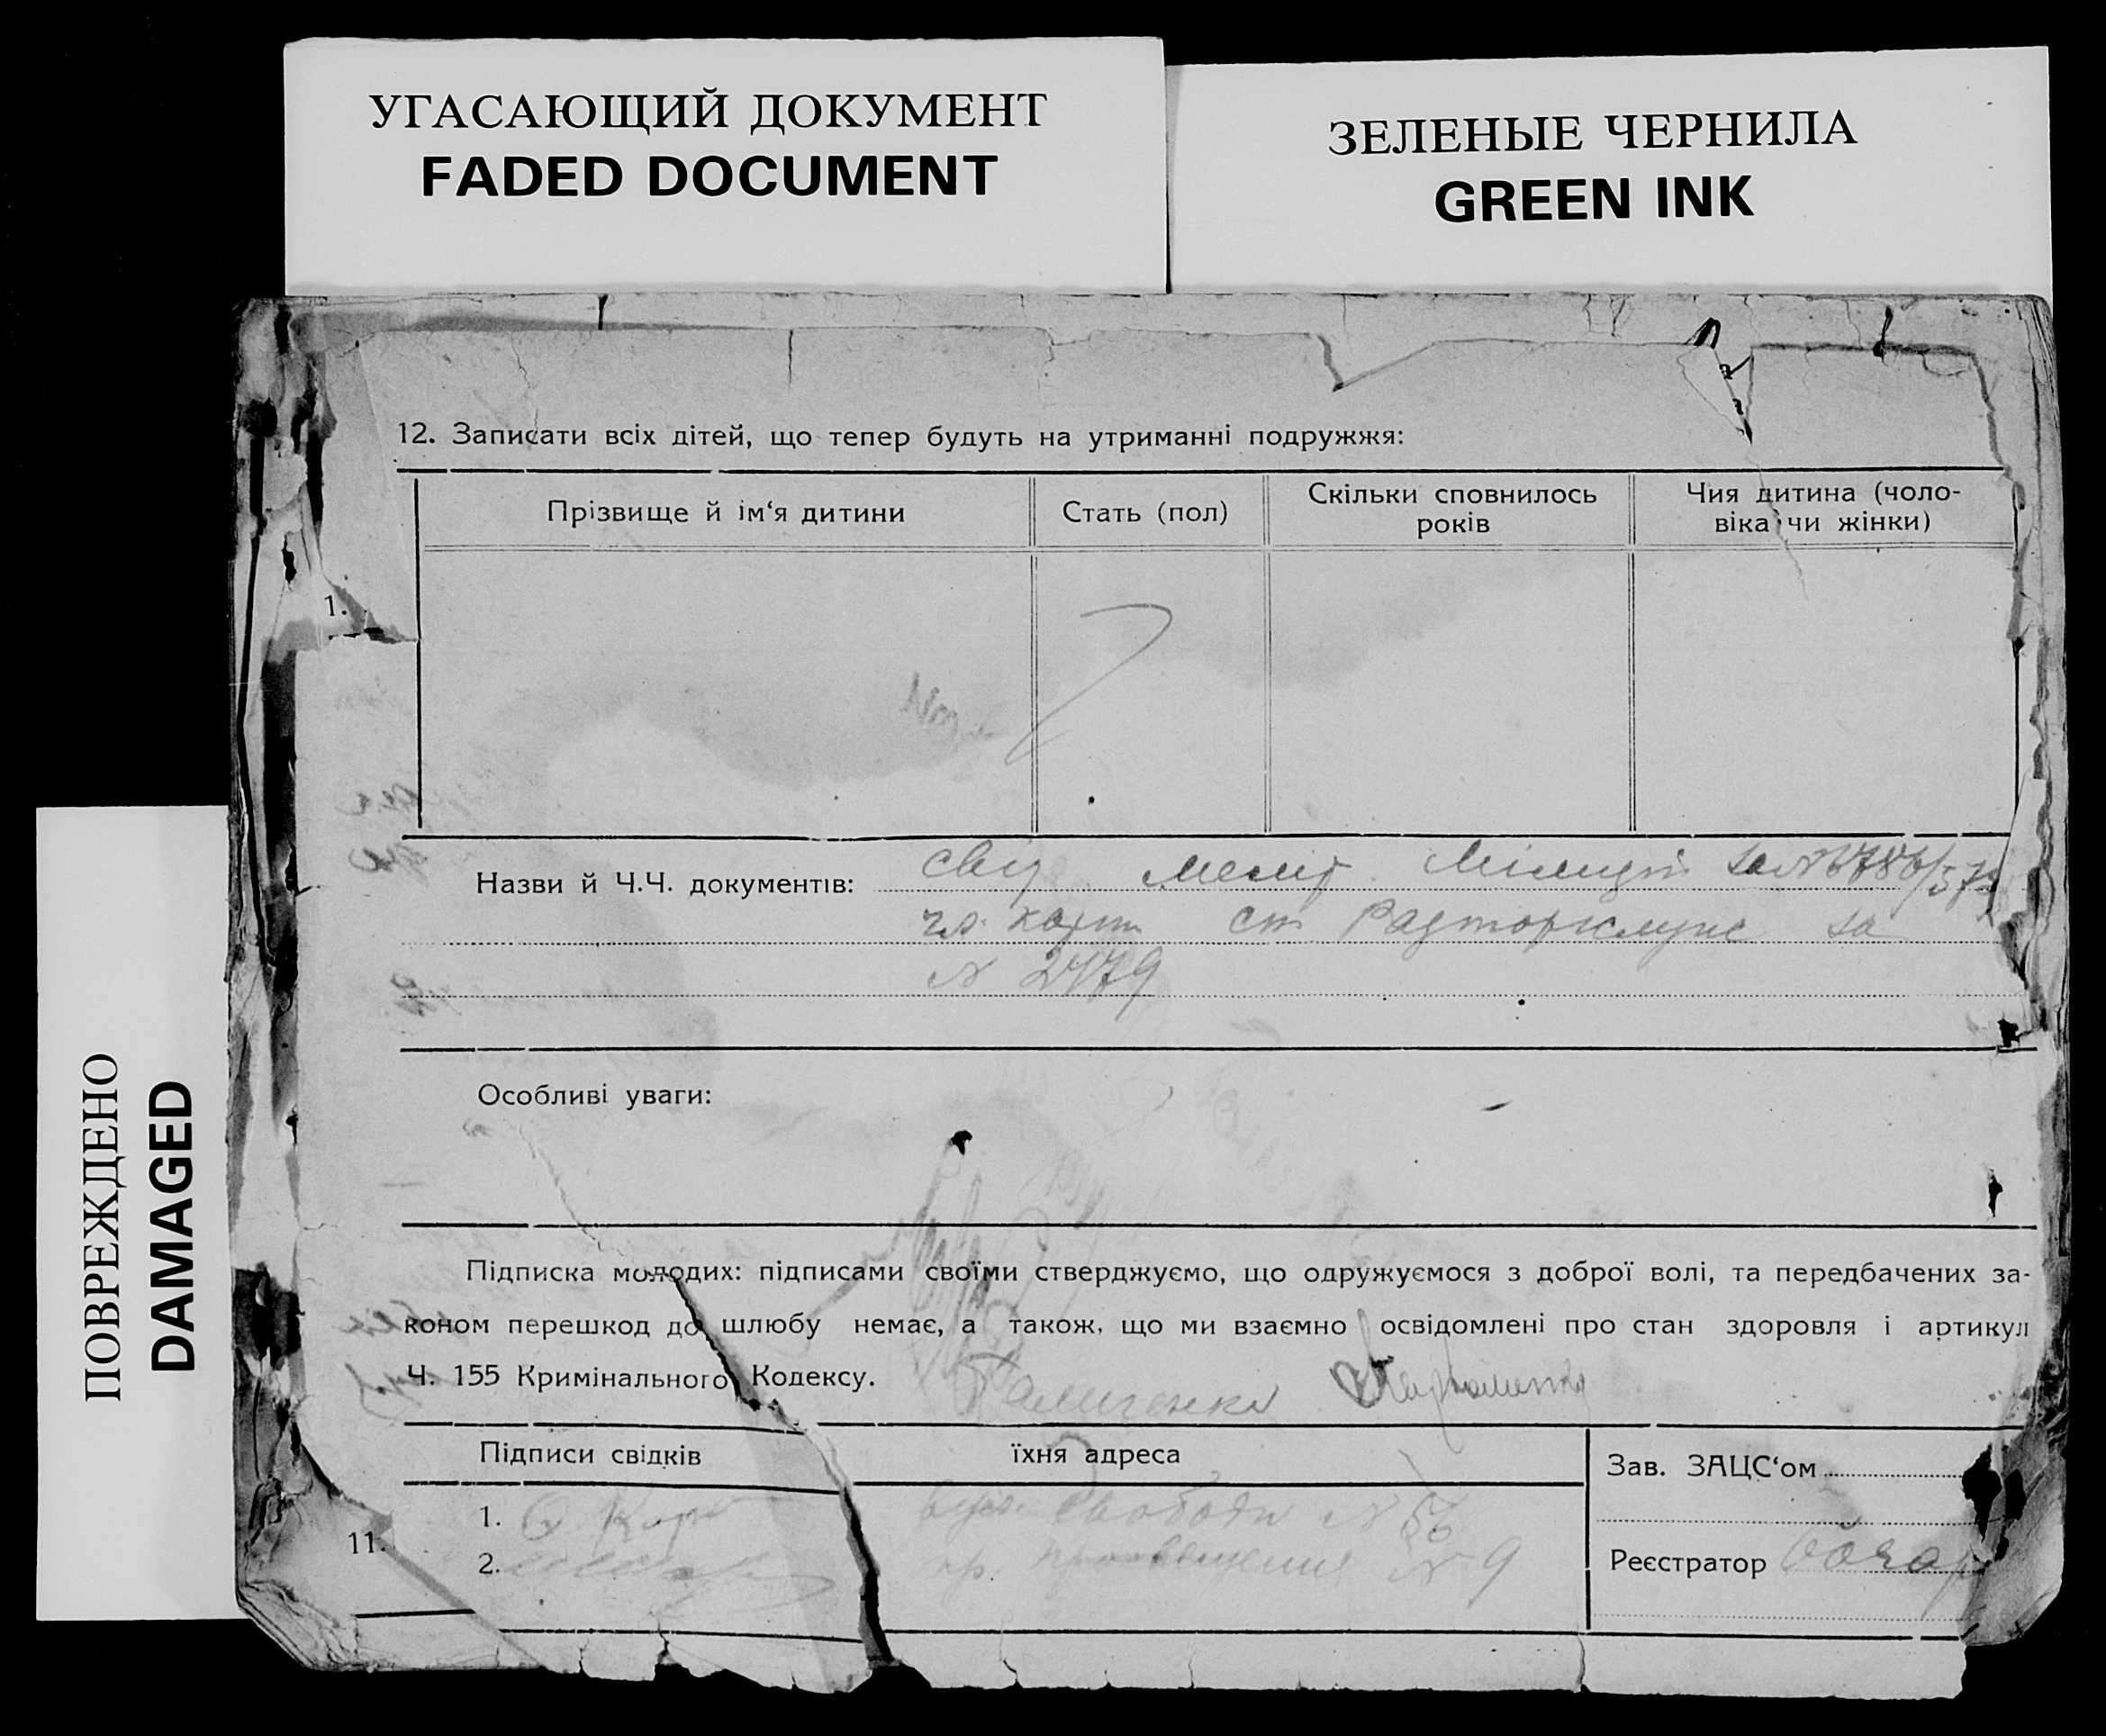 УГАСАЮЩИЙ ДОКУМЕНТ
FADED DOCUMENT
ЗЕЛЕНЫЕ ЧЕРНИЛА
GREEN INK
ПОВРЕЖДЕНО
DAMAGED
12. Записати всіх дітей, що тепер будуть на утриманні подружжя:
Прізвище й ім‘я дитини
Стать (пол)
Скільки сповнилось
років
Чия дитина (чоло-
віка чи жінки)
1.
Назви й Ч.Ч. документів: за №
ст за
№ 2479
Особливі уваги:
Підписка молодих: підписами своїми стверджуємо, що одружуємося з доброї волі, та передбачених за-
коном перешкод до шлюбу немає, а також, що ми взаємно освідомлені про стан здоровля і артикул
Ч. 155 Кримінального Кодексу.
Підписи свідків
їхня адреса
Зав. ЗАЦС‘ом
1. вул. Свободи № 56
11.
2. пр. № 9
Реєстратор